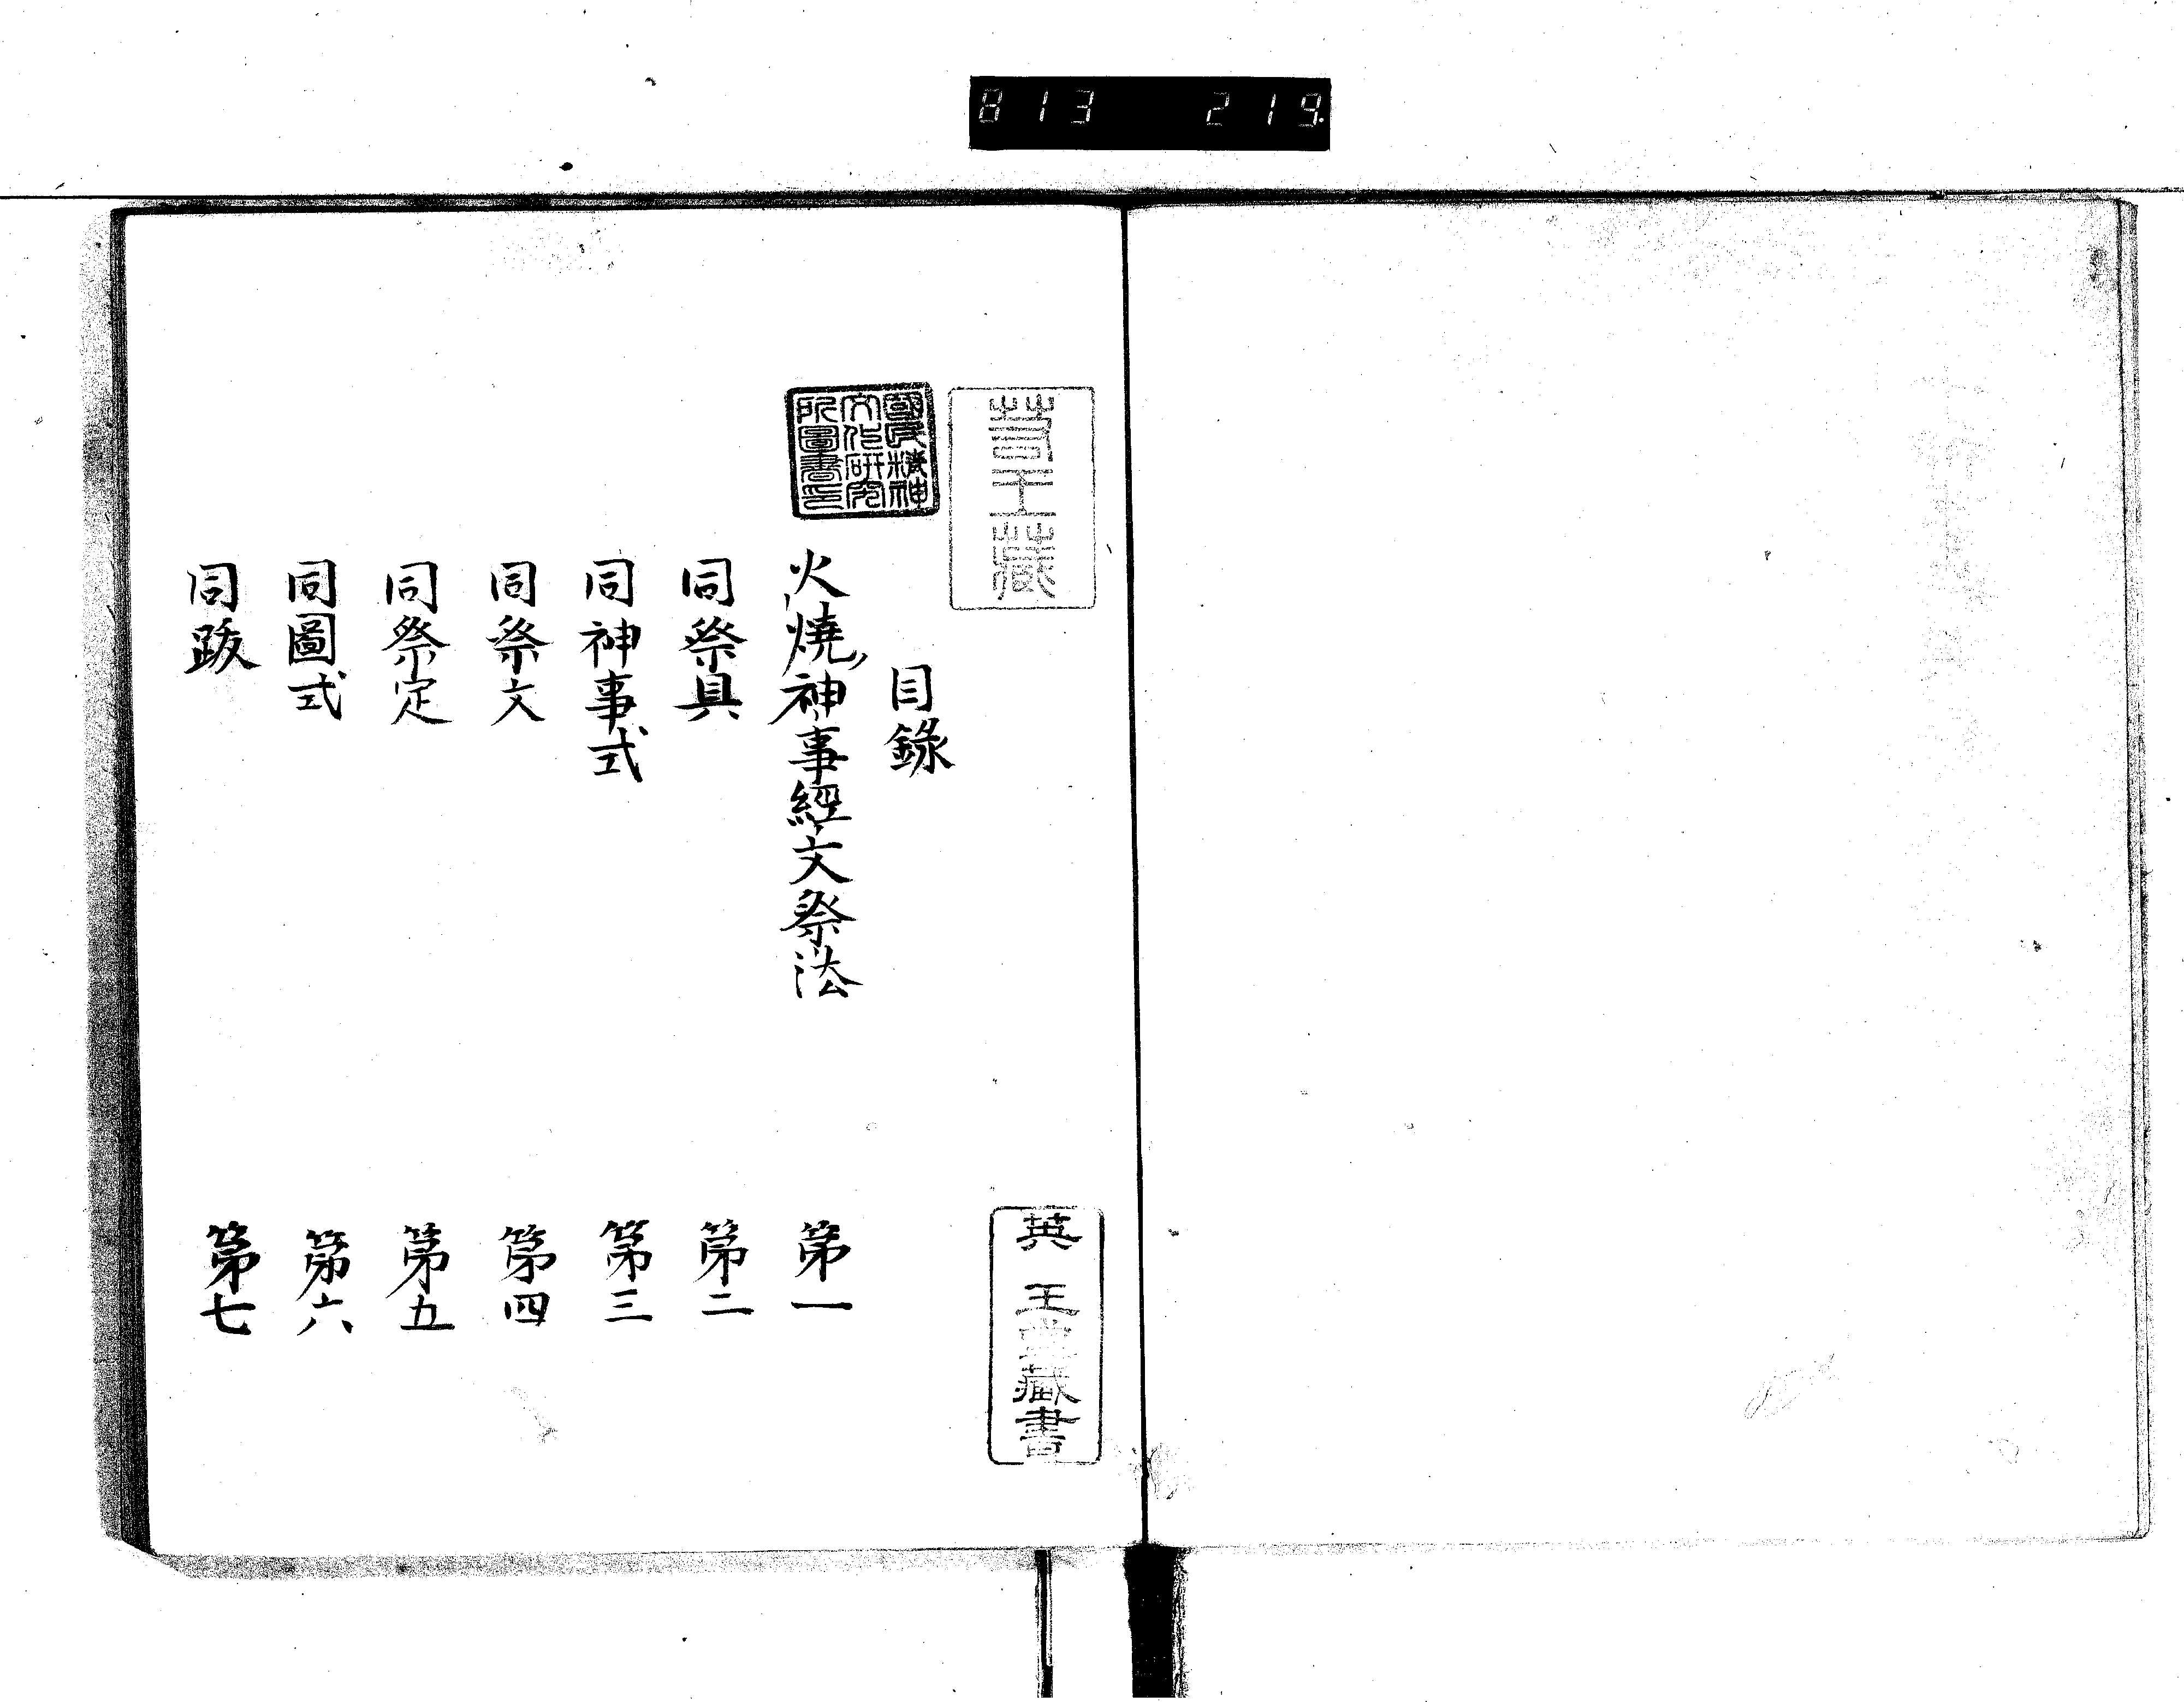 813 219
目錄
火燒神事經文祭法 第一
同祭具 第二
同神事式 第三
同祭文 第四
同祭定 第五
同圖式 第六
同跋 第七
國民精神
文化研究
所圖書印
英王堂藏書